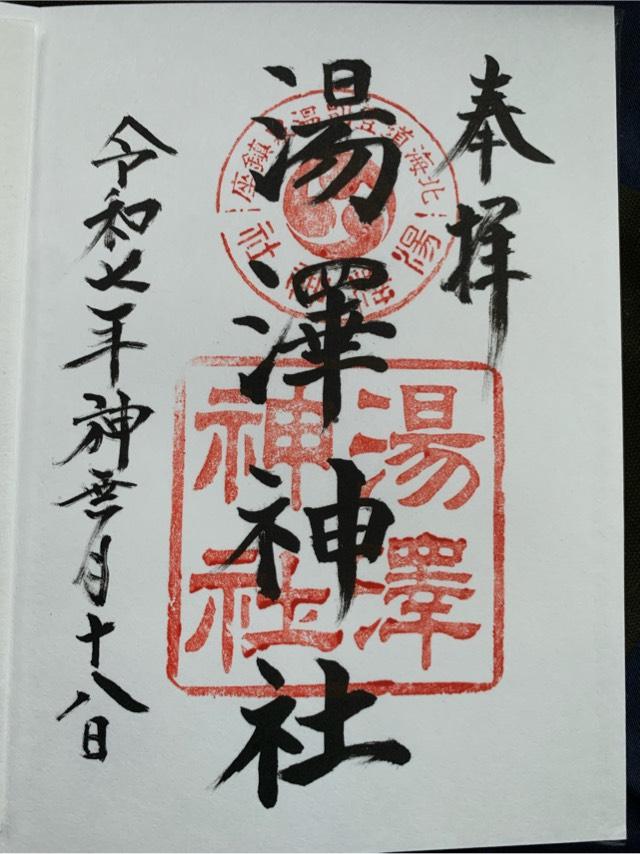 奉拝
湯澤神社
湯澤
神社
令和七年神無月十八日